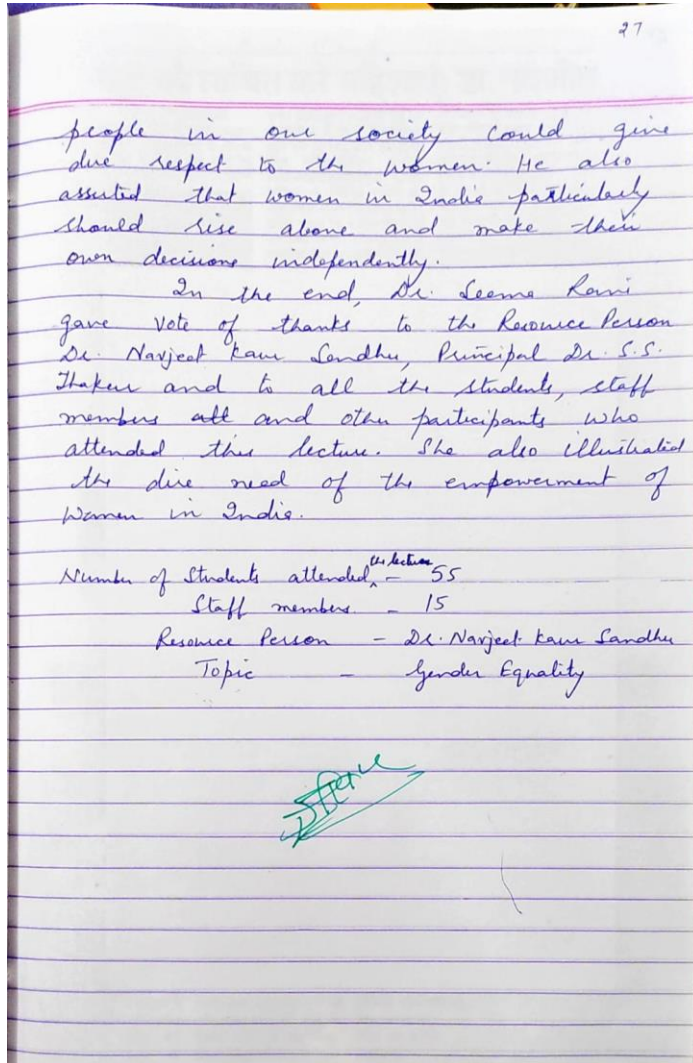 27
people in our society could give
due respect to the women. He also
asserted that women in India particularly
should rise above and make their
own decisions independently.
In the end, Dr. Seema Rani
gave vote of thanks to the Resource Person
Dr. Navjeet Kaur Sandhu, Principal Dr. S.S.
Thakur and to all the students, staff
members all and other participants who
attended this lecture. She also illustrated
the dire need of the empowerment of
Women in India.
Number of Students attended the lecture - 55
Staff members - 15
Resource Person - Dr. Navjeet Kaur Sandhu
Topic - Gender Equality